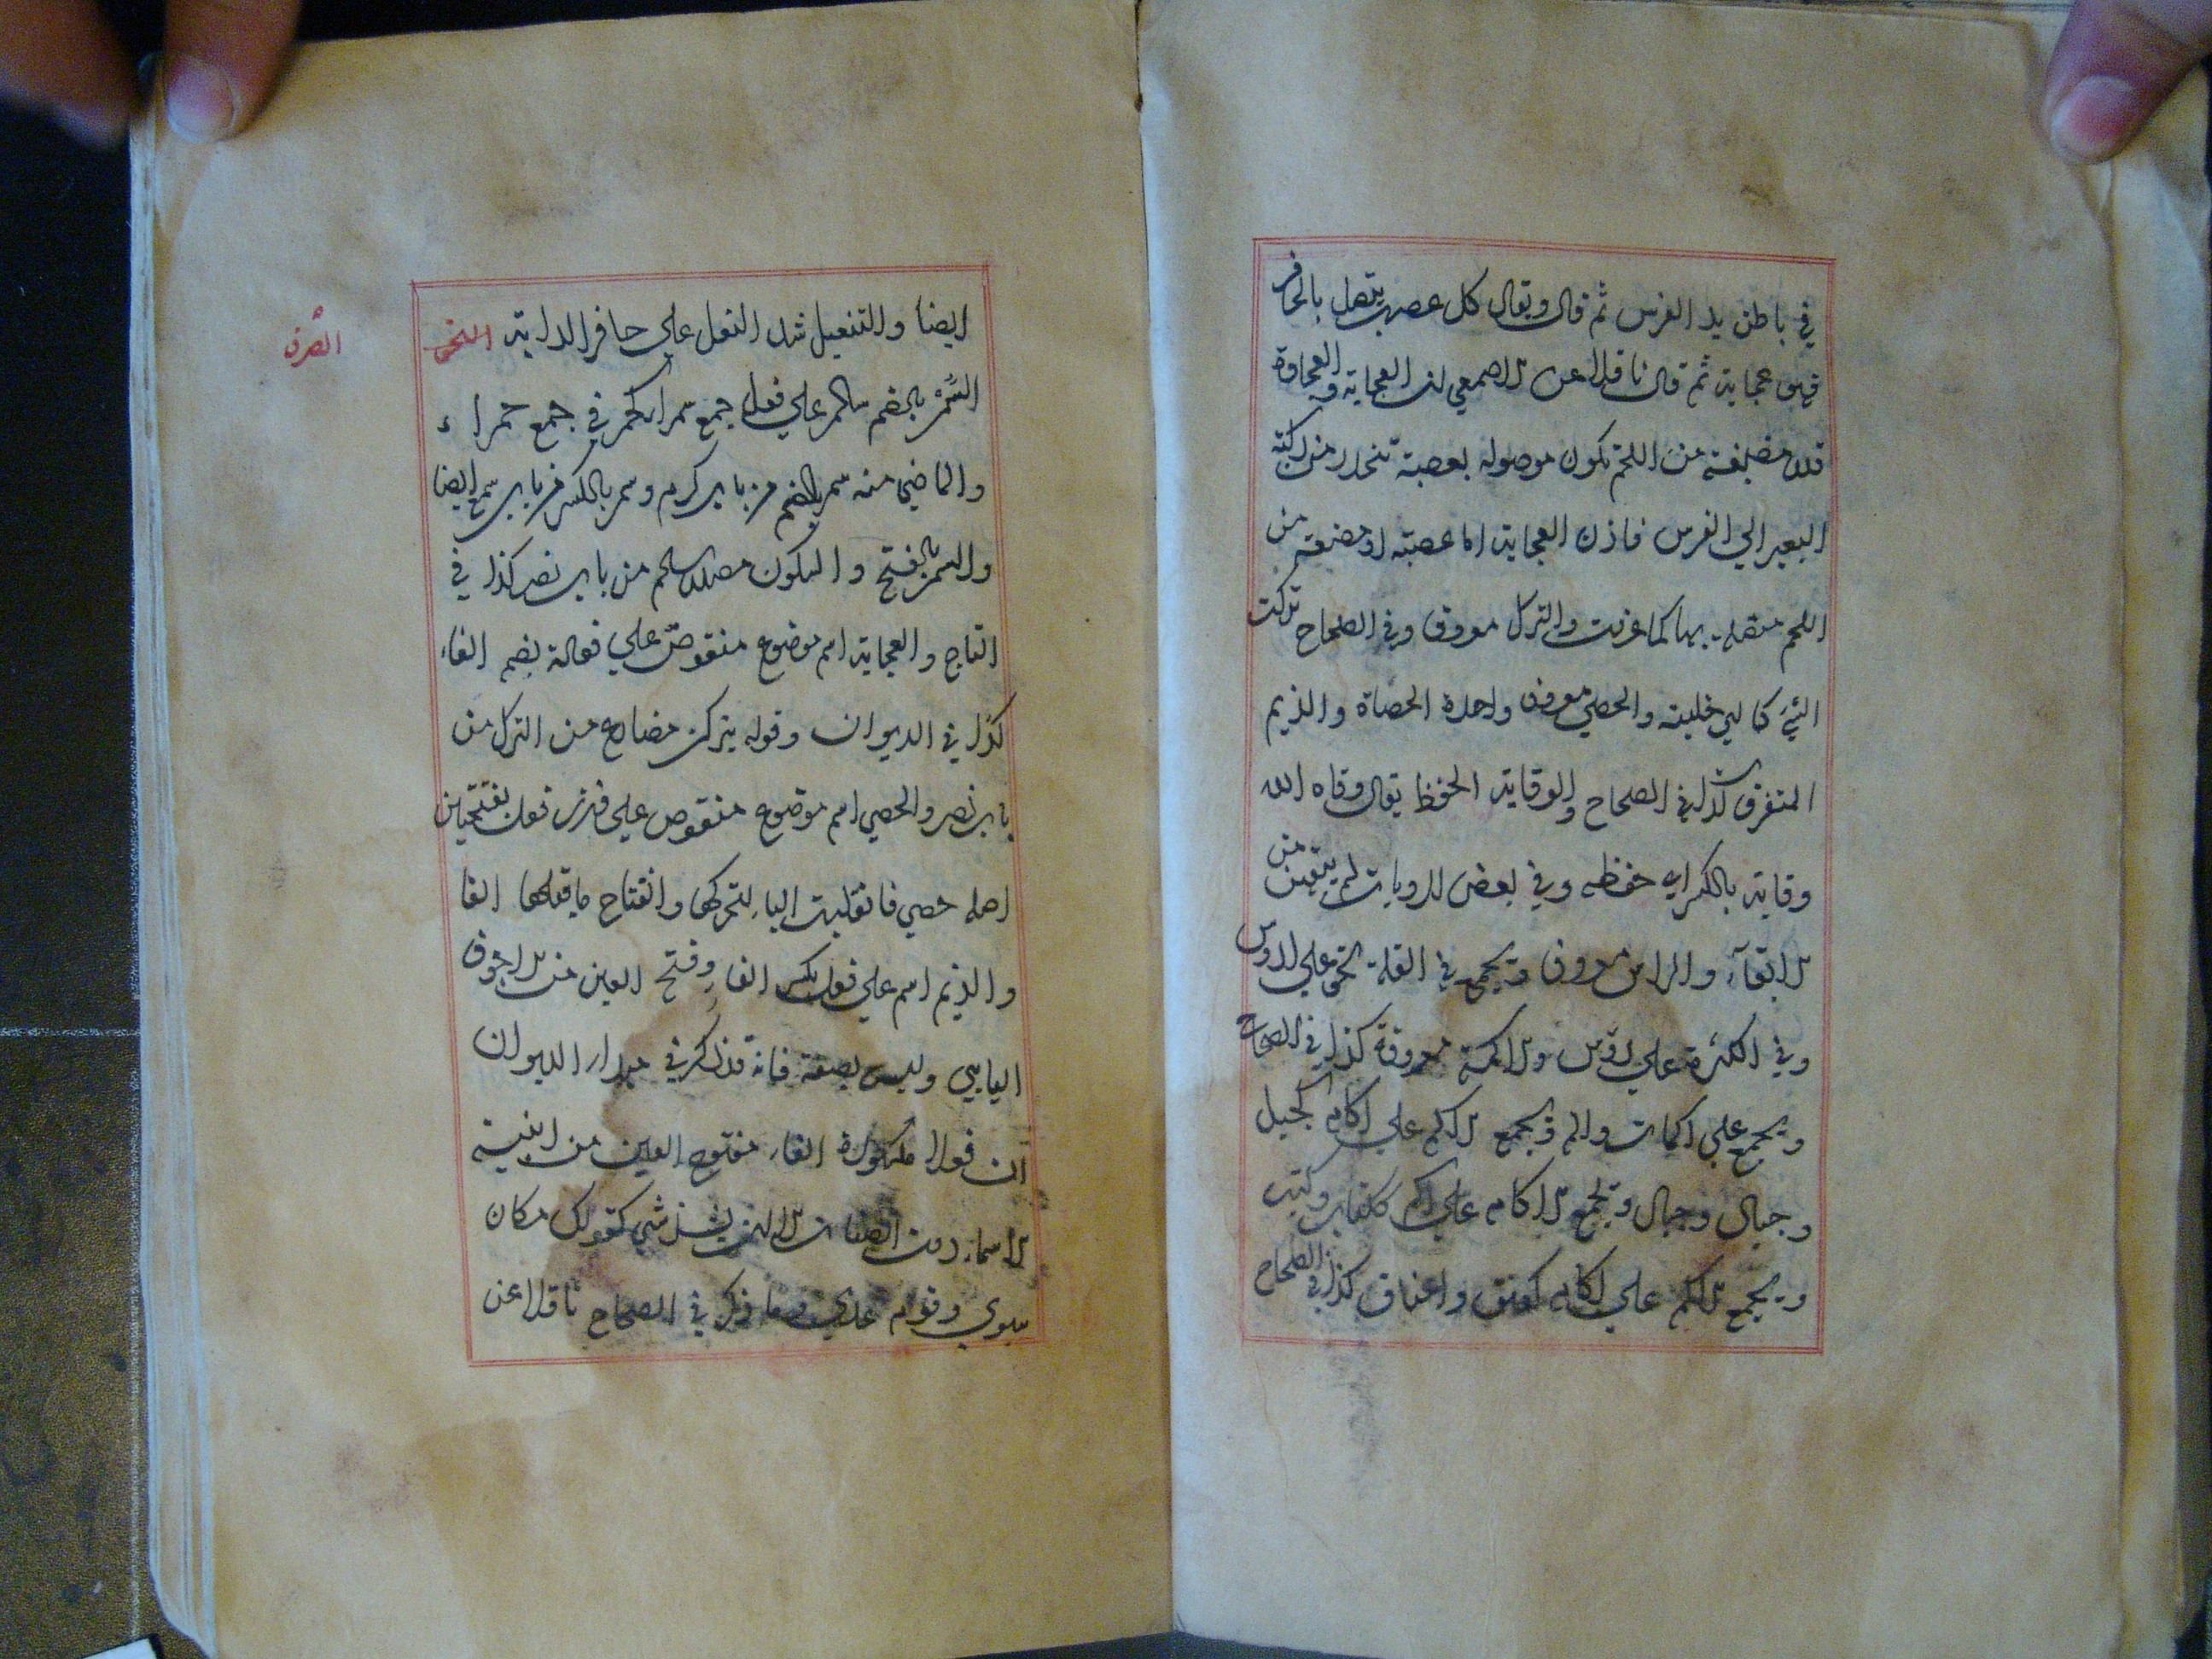 في باطن يد الفرس ثم قال ويقال كل عصب يتصل بالحافر
فهو عجاية ثم قال ناقلا عن الاصمعي ان العجاية والعجاوة
قدر مضغة من اللحم تكون موصولة بعصبة تنحدر من ركبة
البعير الي الفرس فاذن العجاية اما عصبة او مضغة من
اللحم متصلة بها كما عرفت والترك معروف وفي الصحاح تركت
الشيء خليته والحصي معروف واحدة الحصاة والزيم
المتفرق كذا في الصحاح والوقاية الحفظ يقال وقاه الله
وقاية بالكسر اي حفظه وفي بعض الروايات لم يتقين من
الاتقاء والراس معروف ويجمع في القلة علي ارؤس
وفي الكثرة علي رؤس والاكمة معروفة كذا في الصحاح
ويجمع علي اكمات واكم ويجمع الاكم علي اكام كجبل
وجبال وجبال ويجمع الاكام علي اكم ككتاب وكتب
ويجمع الاكم علي اكام كعنق واعناق كذا في الصحاح
ايضا والتنعيل شد النعل علي حافر الدابة النحو
الصرف
السمر بالضم سالم علي فعل جمع سمراء كحمر في جمع حمراء
والماضي منه سمر بالضم من باب كرم وسمر بالكسر من باب سمع ايضا
والسمر بالفتح والسكون مصدر سالم من باب نصر كذا في
التاج والعجاية اسم موضوع منقوص علي فعالة بضم الفاء
كذا في الديوان وقوله يتركن مضارع من الترك من
باب نصر والحصي اسم موضوع منقوص علي وزن فعل بفتحتين
اصله حصي فانقلبت الياء لتحركها وانفتاح ما قبلها الفا
والزيم اسم علي فعل بكسر الفاء وفتح العين من الاجوف
اليايي وليس بصفة فانه قد ذكر في الديوان
ان فعلا مكسورة الفاء مفتوح العين من ابنية
الاسماء دون الصفات كقولك مكان
سوي وقوم عدي وما ذكر في الصحاح ناقلا عن